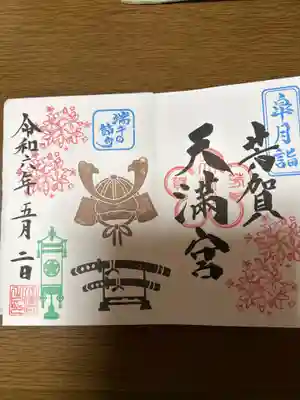 皐月詣
芳賀
天満宮
端午の
節句
令和六年 五月 二日